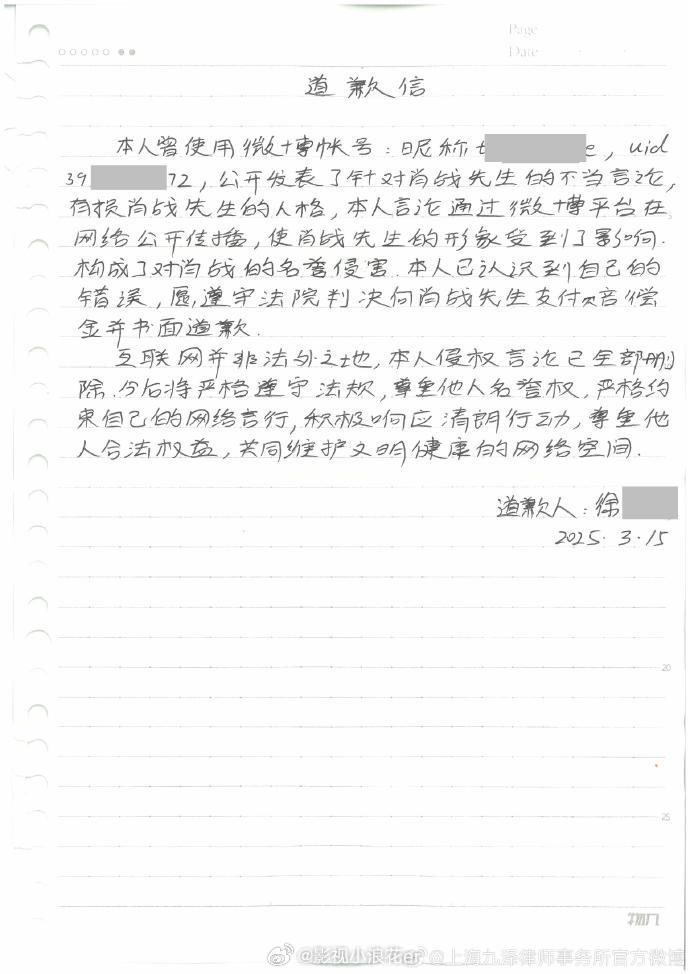 Page
Date
道歉信
本人曾使用微博帐号:昵称t e,uid
39 72,公开发表了针对肖战先生的不当言论,
有损肖战先生的人格,本人言论通过微博平台在
网络公开传播,使肖战先生的形象受到了影响.
构成了对肖战的名誉侵害.本人已认识到自己的
错误,愿遵守法院判决向肖战先生支付赔偿
金并书面道歉.
互联网并非法外之地,本人侵权言论已全部删
除.今后将严格遵守法规,尊重他人名誉权,严格约
束自己的网络言行,积极响应清朗行动,尊重他
人合法权益,共同维护文明健康的网络空间.
道歉人:徐
2025.3.15
20
25
物几
@影视小浪花er @上海九泽律师事务所官方微博